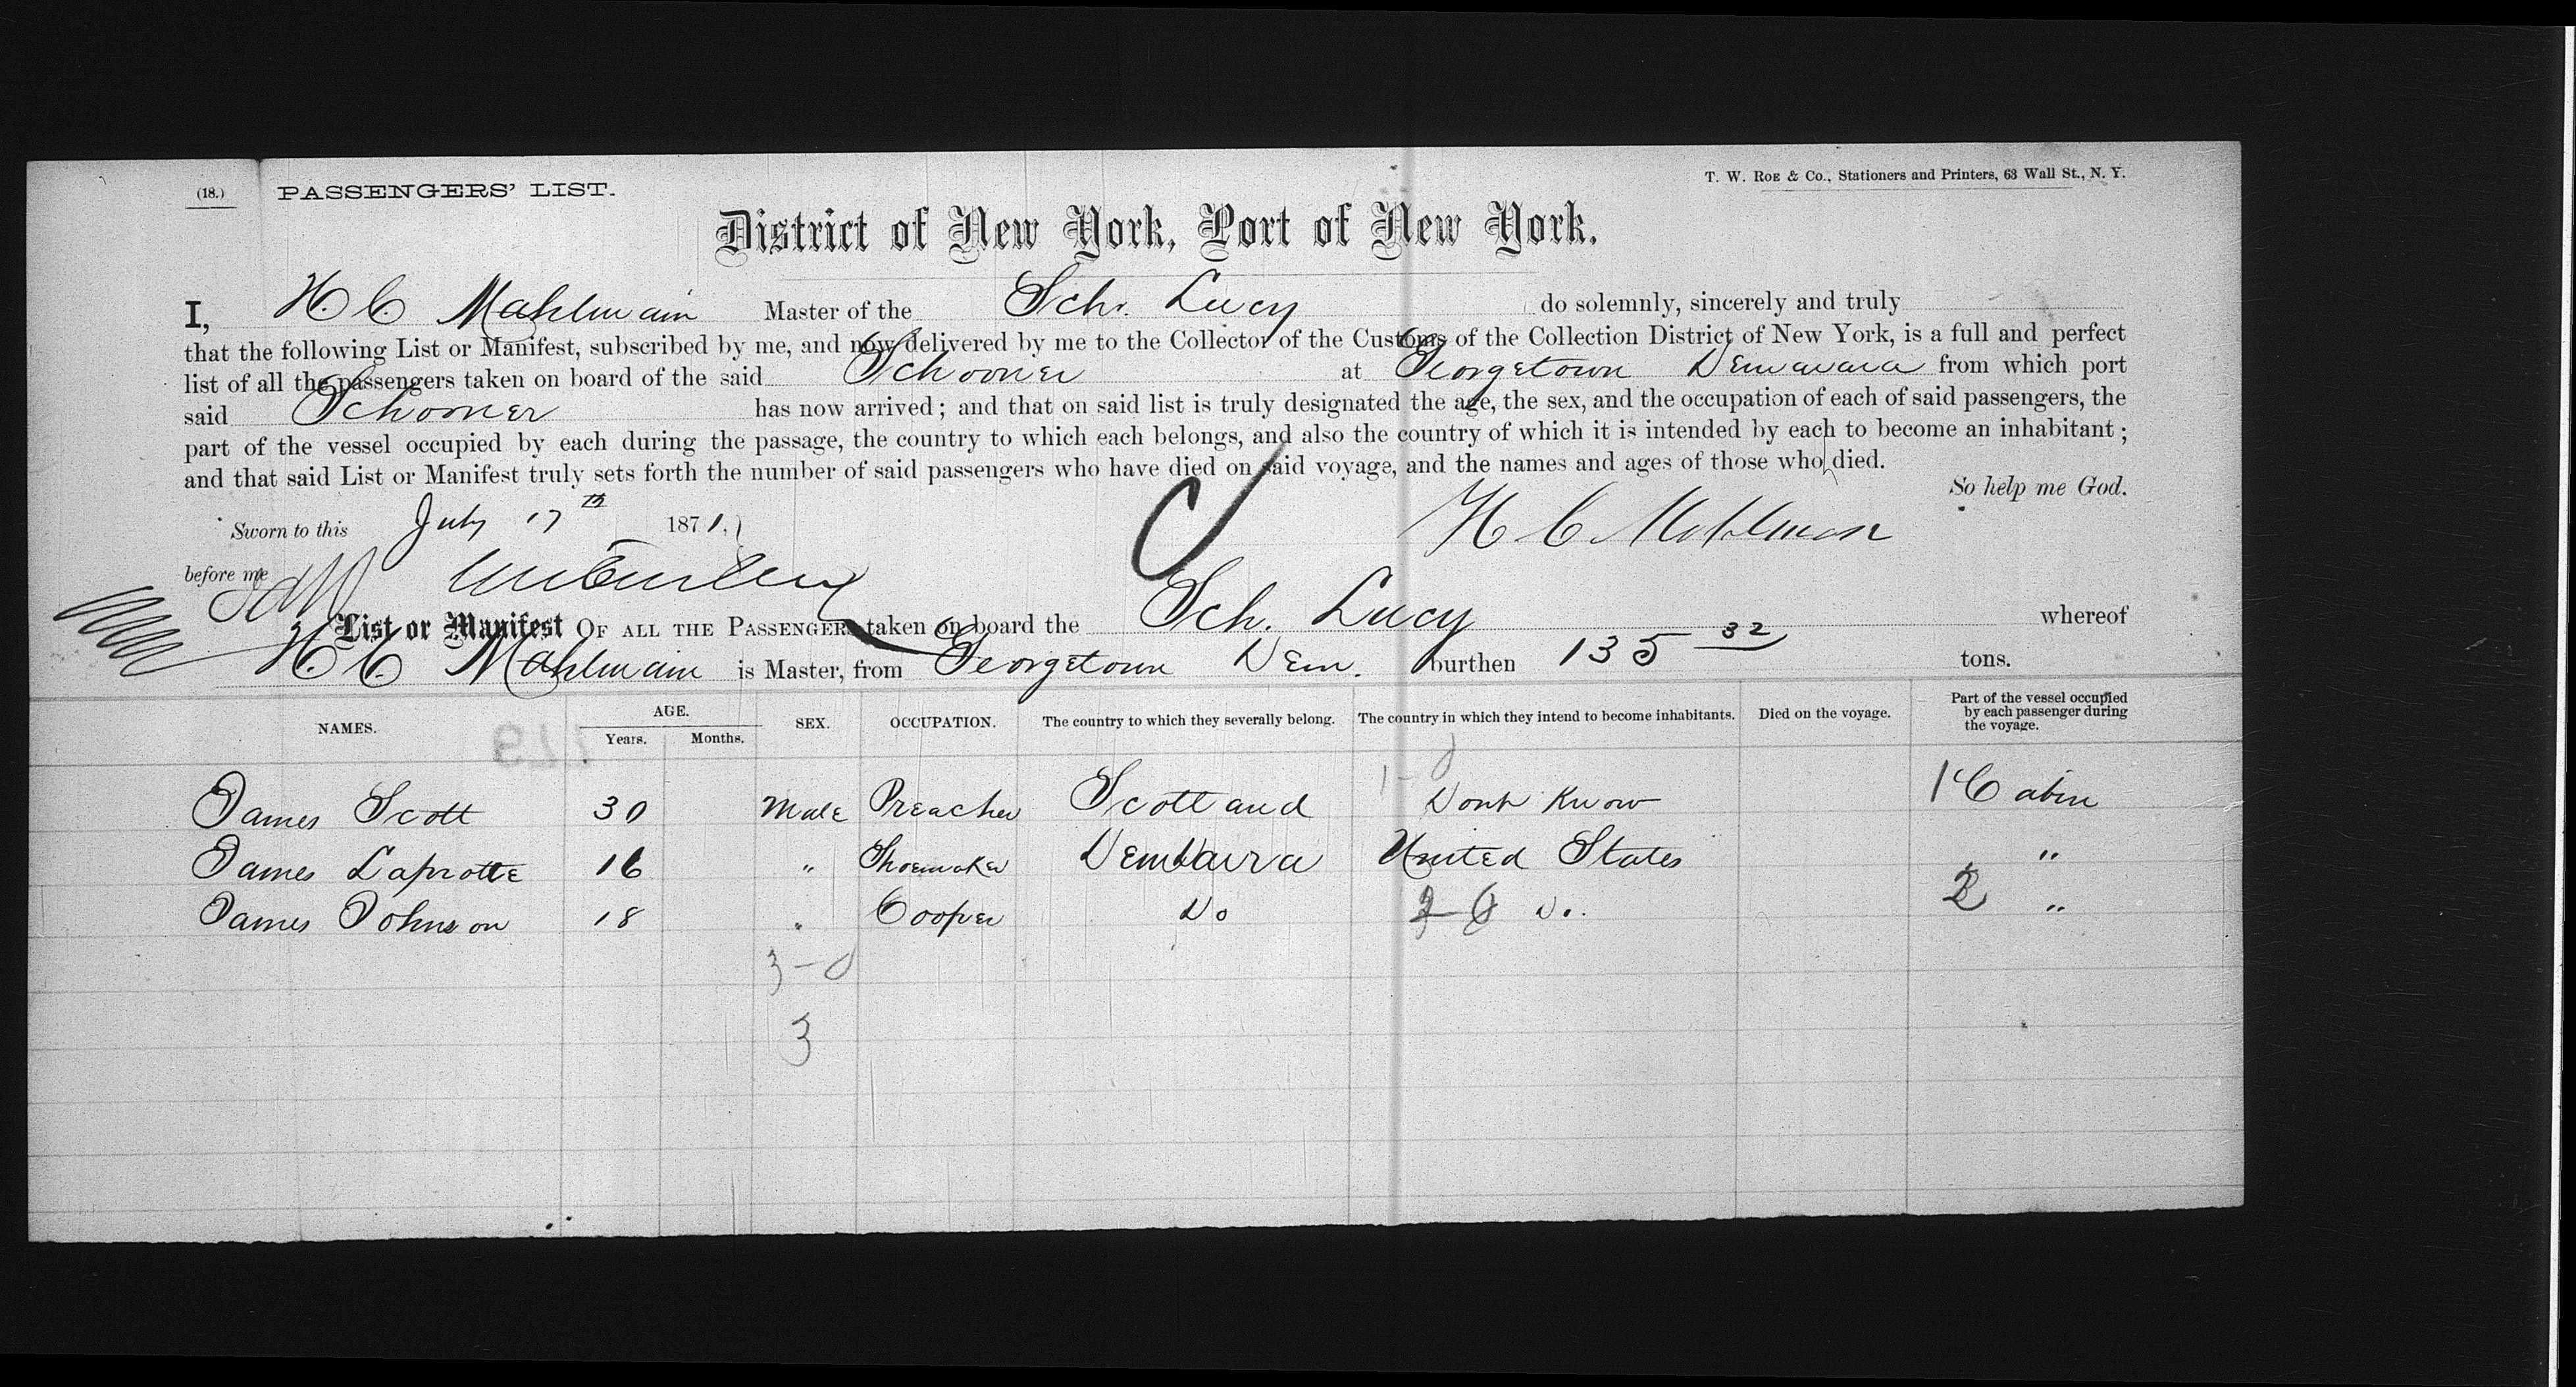 (18.) PASSENGERS' LIST.
T. W. Roe & Co., Stationers and Printers, 63 Wall St., N. Y.
District of New York, Port of New York.
I, H. C. Mahlmain Master of the Schr. Lucy do solemnly, sincerely and truly
that the following List or Manifest, subscribed by me, and now delivered by me to the Collector of the Customs of the Collection District of New York, is a full and perfect
list of all the passengers taken on board of the said Schooner at Georgetown Demarara from which port
said Schooner has now arrived; and that on said list is truly designated the age, the sex, and the occupation of each of said passengers, the
part of the vessel occupied by each during the passage, the country to which each belongs, and also the country of which it is intended by each to become an inhabitant;
and that said List or Manifest truly sets forth the number of said passengers who have died on said voyage, and the names and ages of those who died.
So help me God.
Sworn to this July 17th 1871. H C Mahlman
before me
List or Manifest OF ALL THE PASSENGERS taken on board the Sch. Lucy whereof
H. C. Mahlmain is Master, from Georgetown Dem. burthen 135 32 tons.
NAMES. AGE. Years. Months. SEX. OCCUPATION. The country to which they severally belong. The country in which they intend to become inhabitants. Died on the voyage. Part of the vessel occupied by each passenger during the voyage.
1-0
James Scott 30 Male Preacher Scottand Dont Know 1 Cabin
James Laprotte 16 " Shoemaker United States "
James Johnson 18 " Cooper Do 2-0 Do. 2 "
3-0
3